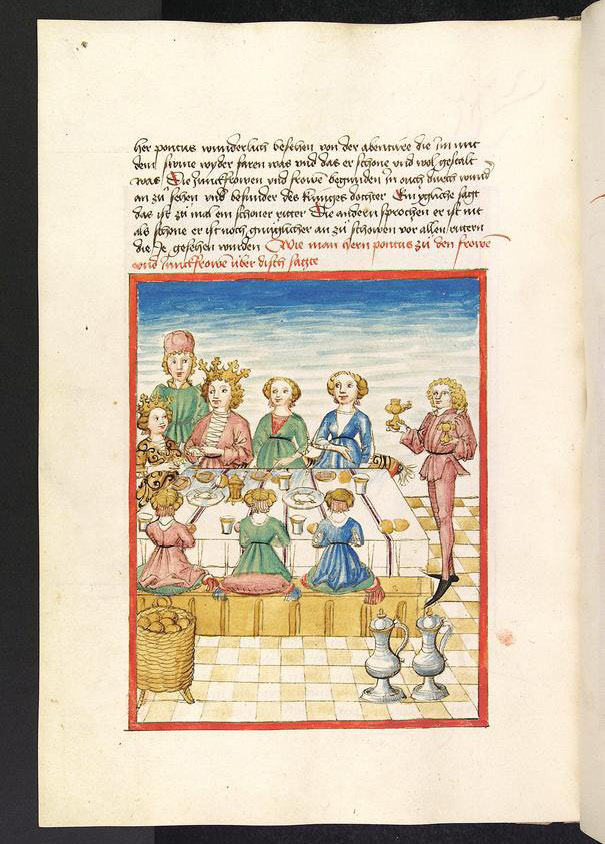 her pontus wunderlich besehen von der abentüre die im mit
dem swine wyder faren was vnd das er schone vnd wol gestalt
was Die junckfrowen vnd frowe begunden in ouch durch wund
an zu sehen vnd besunder des küniges dochter Ein ygliche sagt
das ist zu mal ein schoner ritter Die andern sprochen er ist nit
als schone er ist noch an zu schowen vor allen rittern
die je gesehen wurden Wie man hern pontus zu den frowe
vnd junckfrowe über disch satzte